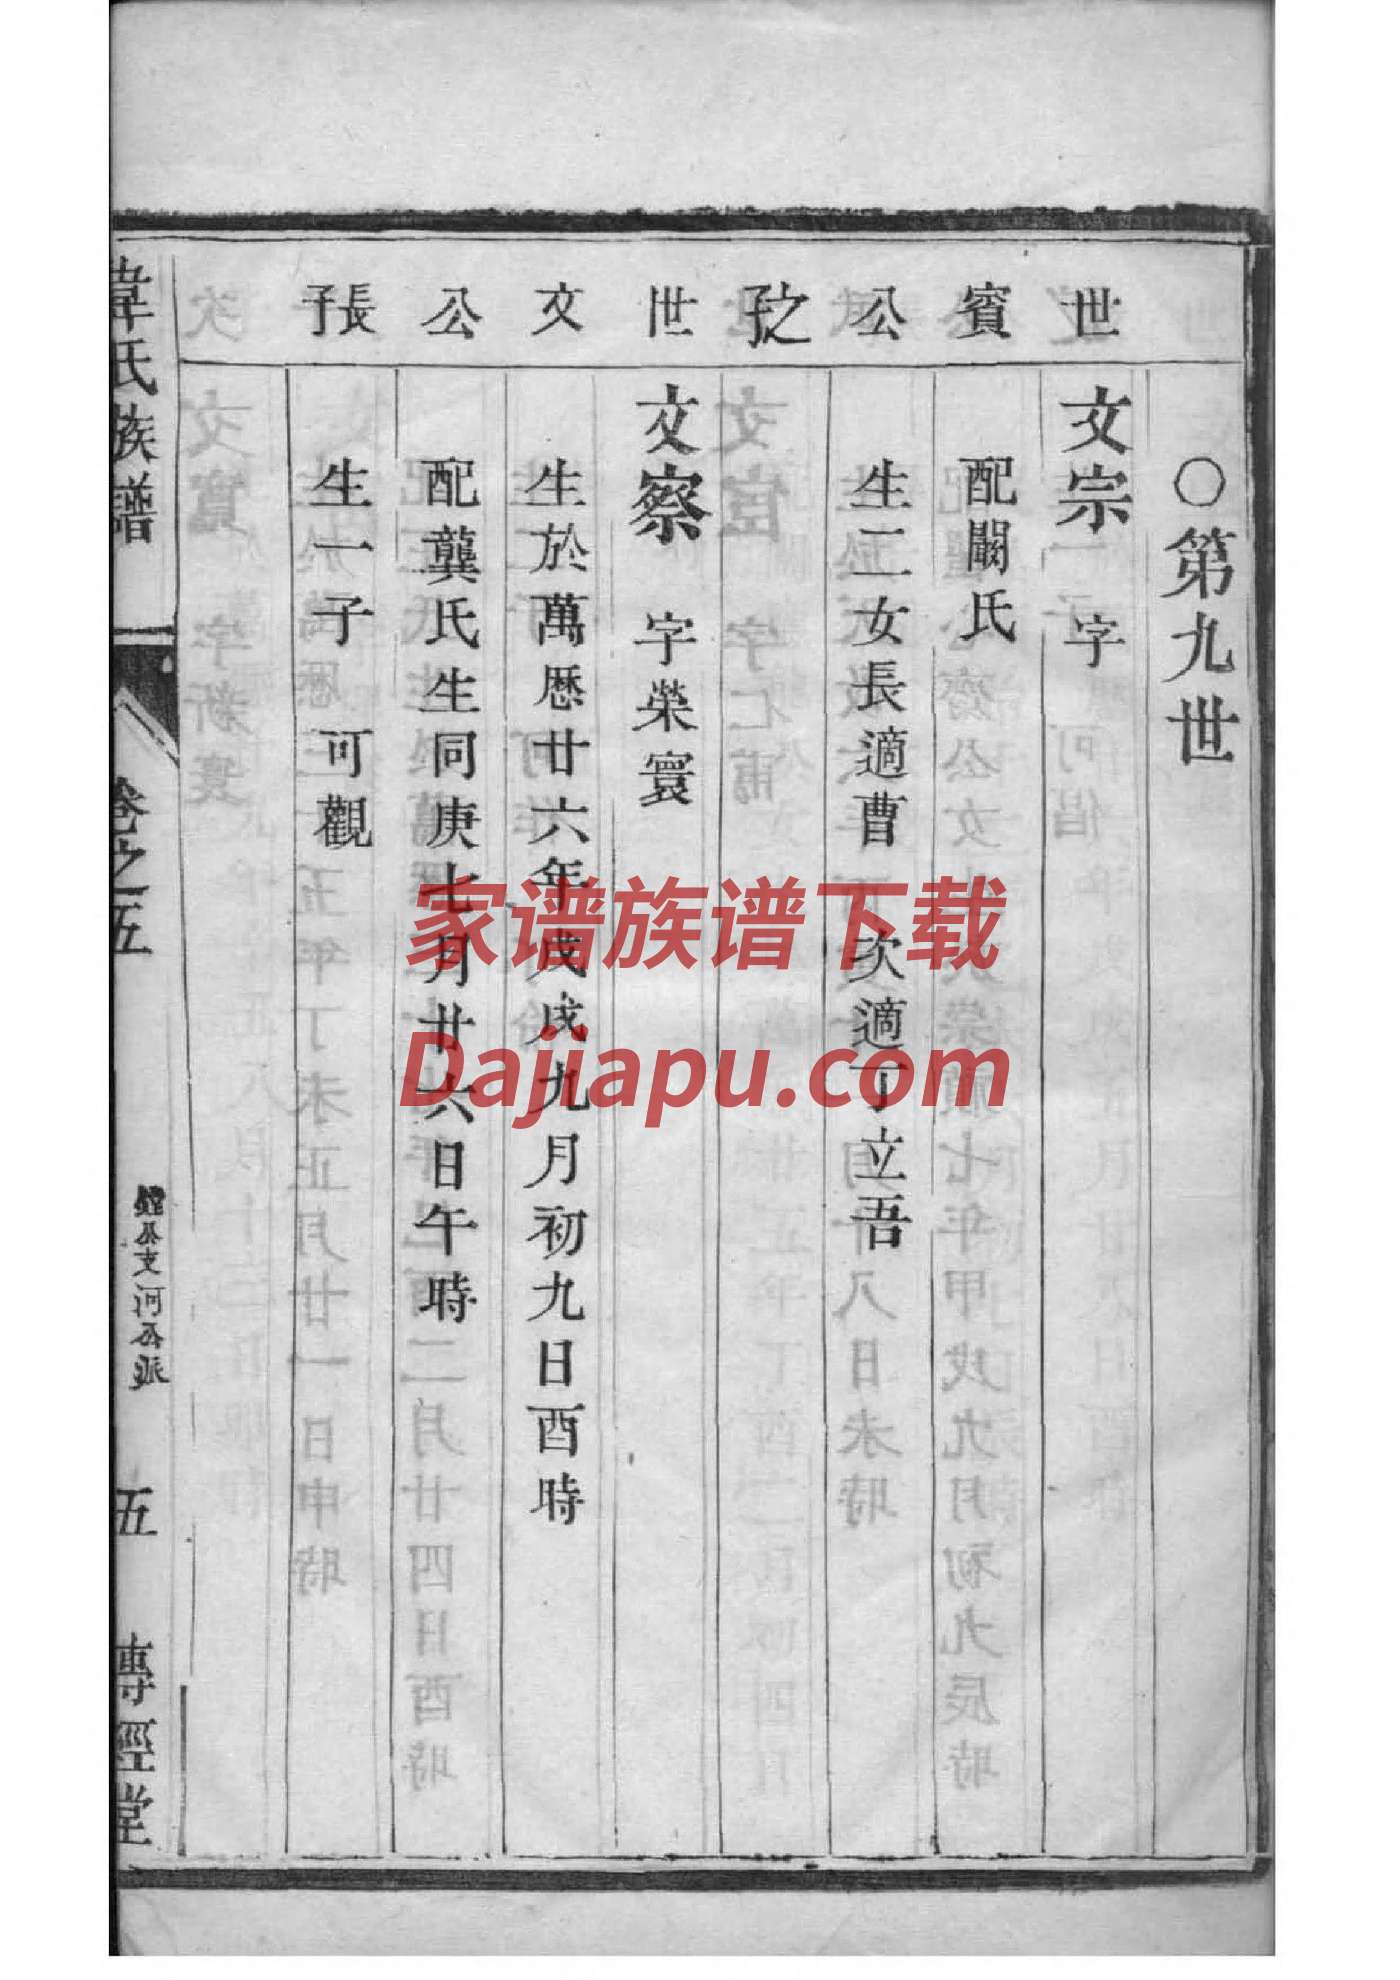 ○第九世
世
文宗 字
賓
配闞氏
公
生二女長適曹 次適丁立吾
之
子
世
文察 字榮寰
文
生於萬歷廿六年戊戌九月初九日酉時
公
配龔氏生同庚七月廿六日午時
長
子
生一子 可觀
韋氏族譜
卷之五
公支河公派
五
傳經堂
家谱族谱下载
Dajiapu.com